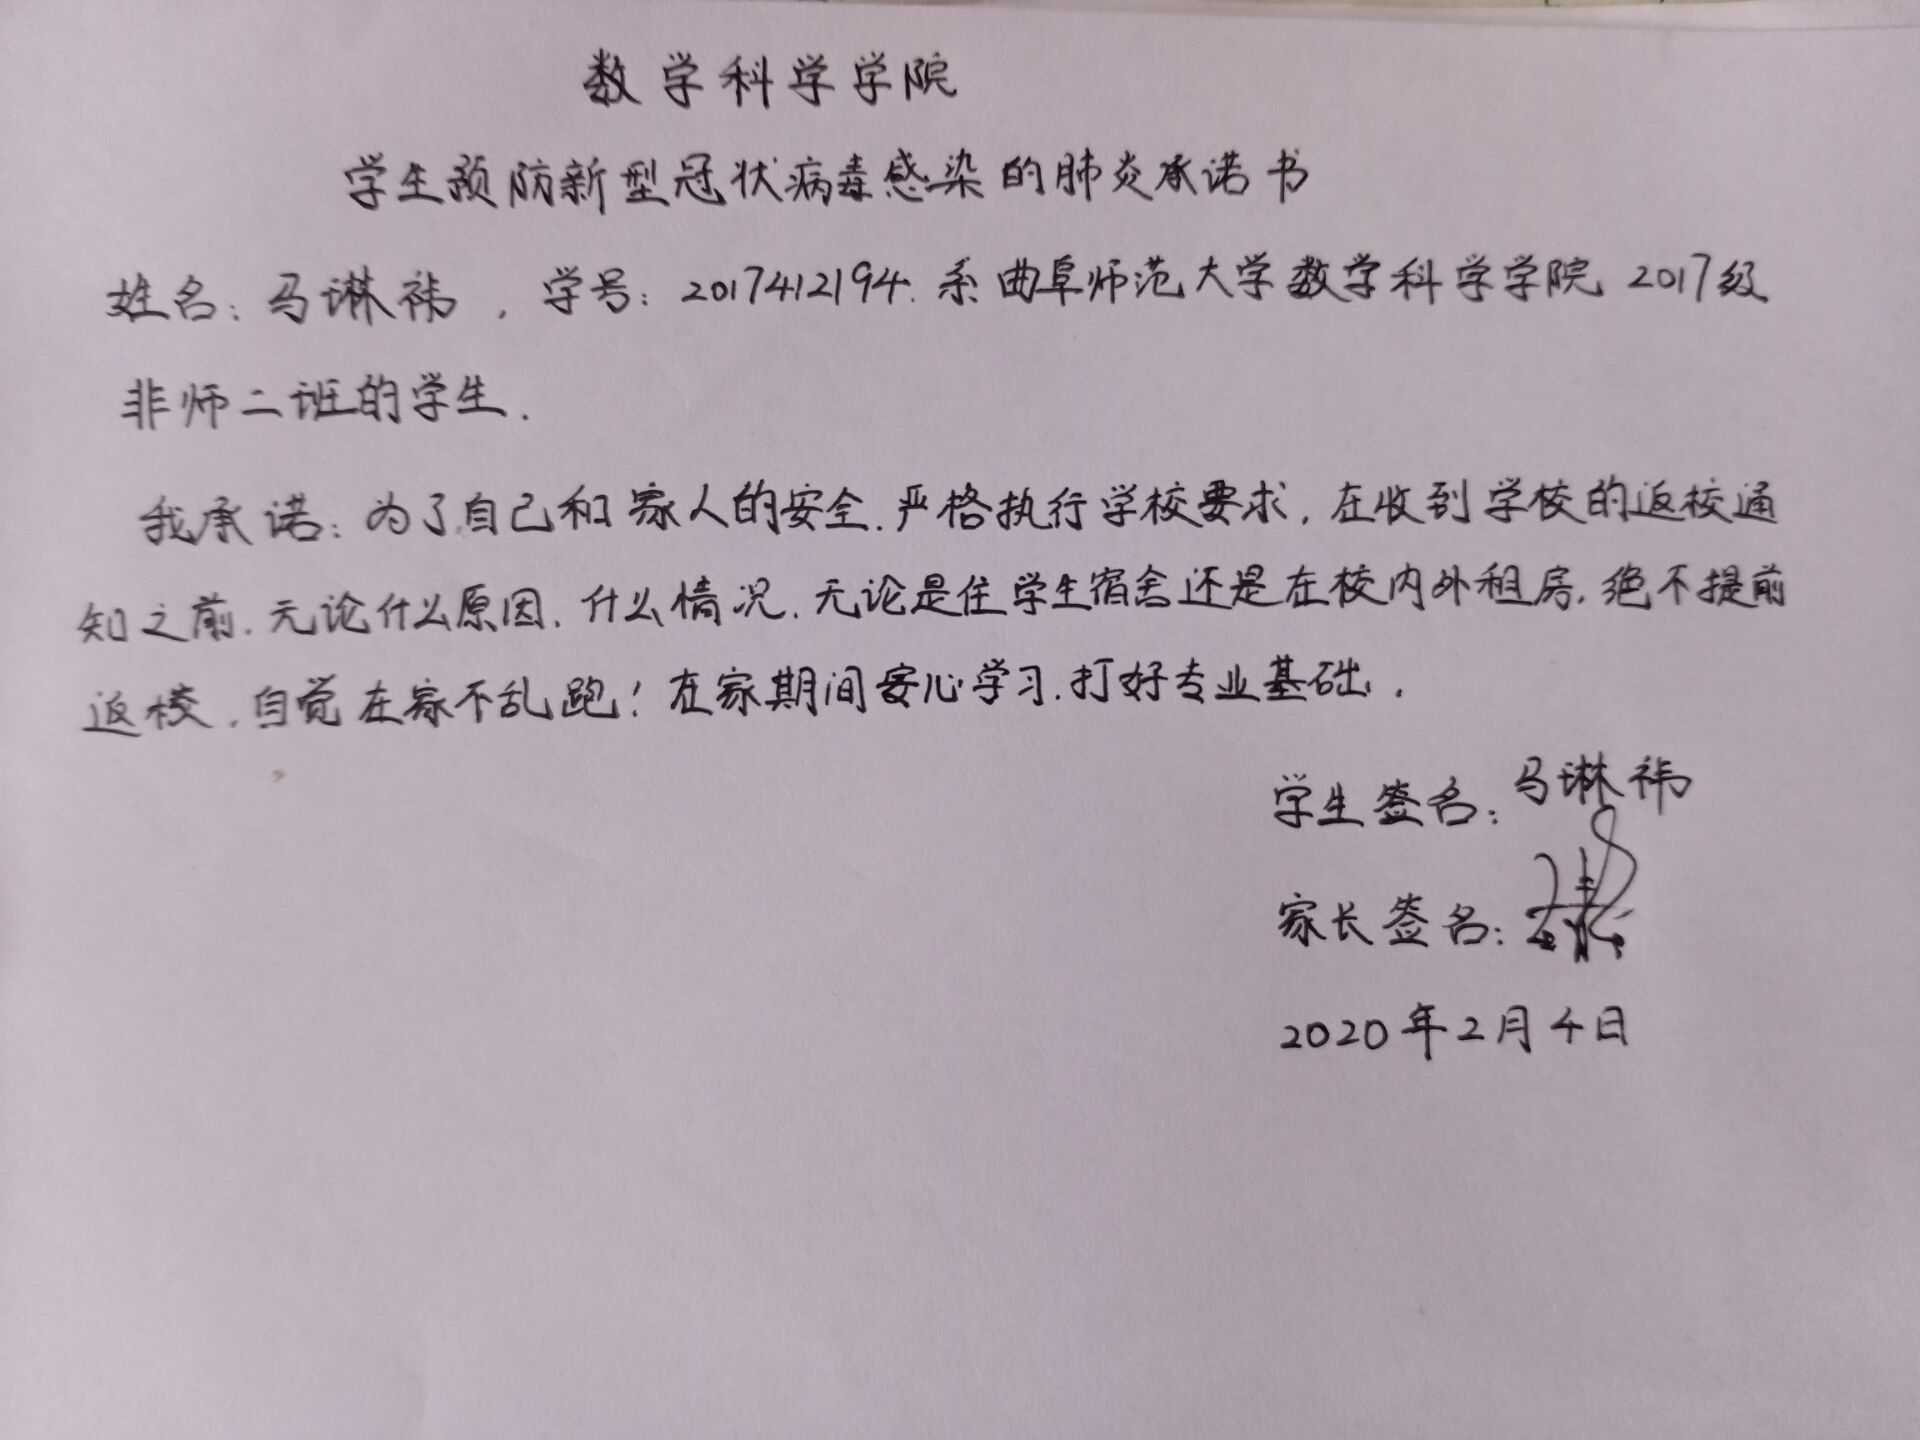 数学科学学院
学生预防新型冠状病毒感染的肺炎承诺书
姓名：马琳祎，学号：2017412194. 系曲阜师范大学数学科学学院 2017级
非师二班的学生.
我承诺：为了自己和家人的安全.严格执行学校要求，在收到学校的返校通
知之前.无论什么原因.什么情况.无论是住学生宿舍还是在校内外租房.绝不提前
返校，自觉在家不乱跑！在家期间安心学习.打好专业基础.
学生签名：马琳祎
家长签名：
2020年2月4日